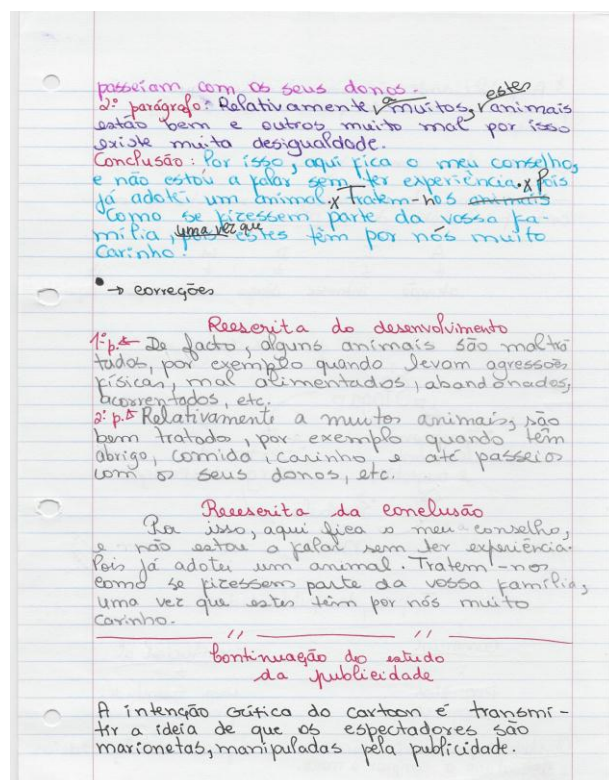 passeiam com os seus donos.
2º parágrafo: Relativamente a muitos, estes animais
estão bem e outros muito mal por isso
existe muita desigualdade.
Conclusão: Por isso, aqui fica o meu conselho,
e não estou a falar sem ter experiência. Pois
já adotei um animal. Tratem-nos animais
como se fizessem parte da vossa fa-
mília, uma vez que estes têm por nós muito
carinho.
• → correções
Reescrita do desenvolvimento
1º p. De facto, alguns animais são maltra
tados, por exemplo quando levam agressões
físicas, mal alimentados, abandonados,
acorrentados, etc.
2º p. Relativamente a muitos animais, são
bem tratado, por exemplo quando têm
abrigo, comida, carinho e até passeios
com os seus donos, etc.
Reescrita da conclusão
Por isso, aqui fica o meu conselho,
e não estou a falar sem ter experiência.
Pois já adotei um animal. Tratem-nos
como se fizessem parte da vossa família,
uma vez que estes têm por nós muito
carinho.
Continuação do estudo
da publicidade
A intenção crítica do cartoon é transmi-
tir a ideia de que os espectadores são
marionetas, manipuladas pela publicidade.